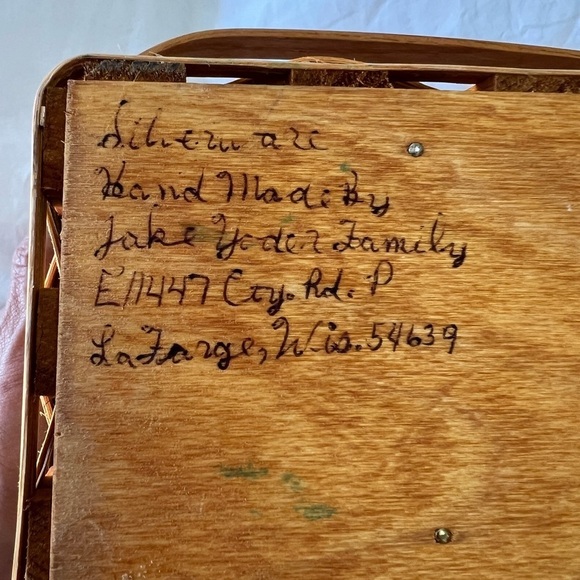 Silverware
Hand Made By
Jake Yoder Family
E11447 Cty. Rd. P
LaFarge, Wis. 54639